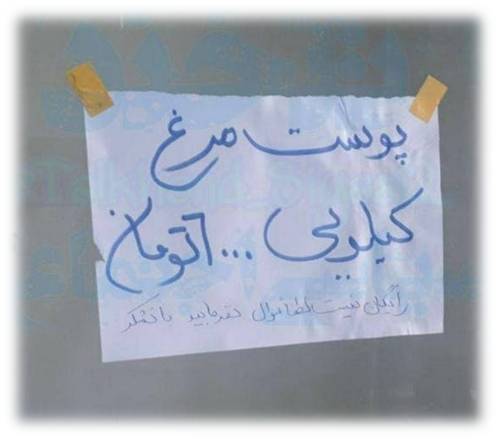 پوست مرغ
کیلویی ۶۰۰۰ تومان
رایگان نیست لطفا سوال نفرمایید با تشکر